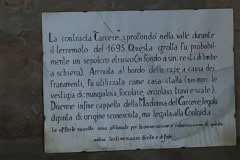 La contrada "Carcere" sprofondò nella valle durante
il terremoto del 1693. Questa grotta fu probabil=
mente un sepolcro etrusco (in fondo a sin: resti di tombe
a schiera). Arrivata al bordo della rupe a causa dei
franamenti, fu utilizzata come casa-stalla (nei muri le
vestigia di: mangiatoia, focolare, orciolaia, travi e scale).
Divenne infine cappella della Madonna del Carcere, la quale
dipinta di origine sconosciuta, ma legata alla Contrada.
Le offerte raccolte sono utilizzate per la conservazione